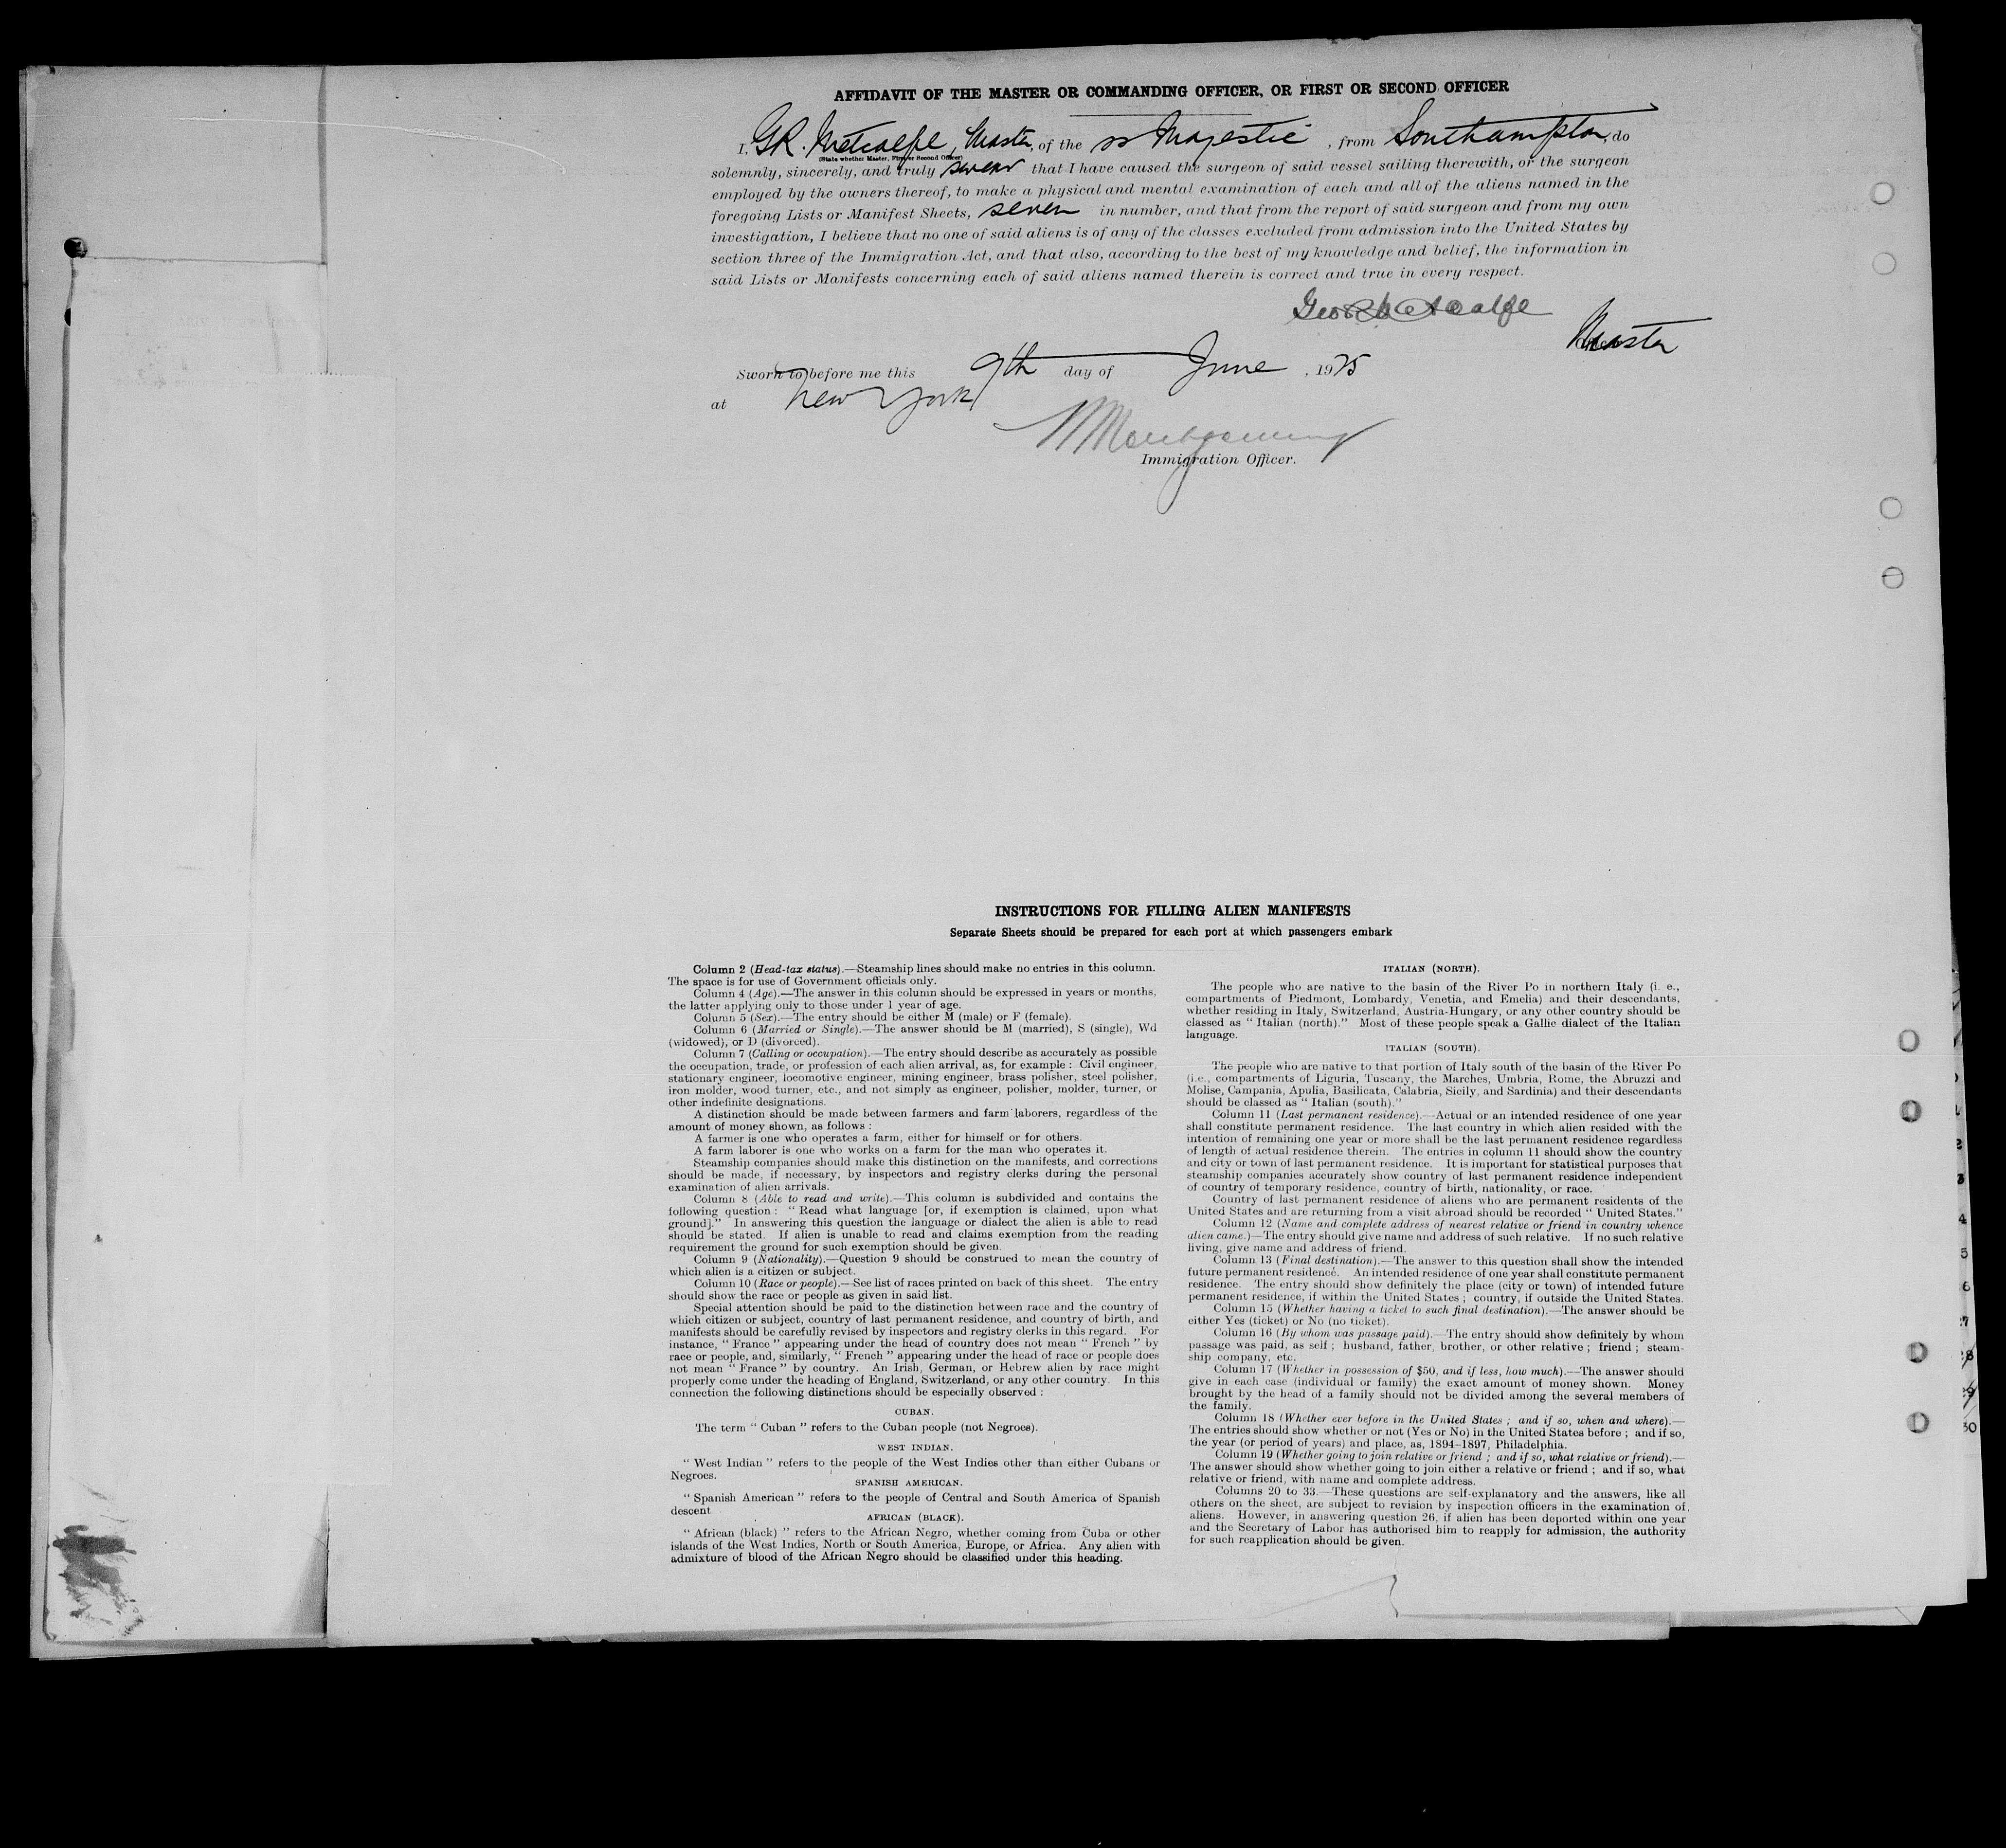 AFFIDAVIT OF THE MASTER OR COMMANDING OFFICER, OR FIRST OR SECOND OFFICER
I, GR. Metcalfe, Master, of the ss Majestic, from Southampton, do
(State whether Master, First or Second Officer)
solemnly, sincerely, and truly swear that I have caused the surgeon of said vessel sailing therewith, or the surgeon
employed by the owners thereof, to make a physical and mental examination of each and all of the aliens named in the
foregoing Lists or Manifest Sheets, seven in number, and that from the report of said surgeon and from my own
investigation, I believe that no one of said aliens is of any of the classes excluded from admission into the United States by
section three of the Immigration Act, and that also, according to the best of my knowledge and belief, the information in
said Lists or Manifests concerning each of said aliens named therein is correct and true in every respect.
Geo R Metcalfe
Master
Sworn to before me this 9th day of June, 1925
at New York
Montgomery
Immigration Officer.
INSTRUCTIONS FOR FILLING ALIEN MANIFESTS
Separate Sheets should be prepared for each port at which passengers embark
Column 2 (Head-tax status).—Steamship lines should make no entries in this column.
The space is for use of Government officials only.
Column 4 (Age).—The answer in this column should be expressed in years or months,
the latter applying only to those under 1 year of age.
Column 5 (Sex).—The entry should be either M (male) or F (female).
Column 6 (Married or Single).—The answer should be M (married), S (single), Wd
(widowed), or D (divorced).
Column 7 (Calling or occupation).—The entry should describe as accurately as possible
the occupation, trade, or profession of each alien arrival, as, for example : Civil engineer,
stationary engineer, locomotive engineer, mining engineer, brass polisher, steel polisher,
iron molder, wood turner, etc., and not simply as engineer, polisher, molder, turner, or
other indefinite designations.
A distinction should be made between farmers and farm laborers, regardless of the
amount of money shown, as follows :
A farmer is one who operates a farm, either for himself or for others.
A farm laborer is one who works on a farm for the man who operates it.
Steamship companies should make this distinction on the manifests, and corrections
should be made, if necessary, by inspectors and registry clerks during the personal
examination of alien arrivals.
Column 8 (Able to read and write).—This column is subdivided and contains the
following question : “ Read what language [or, if exemption is claimed, upon what
ground].” In answering this question the language or dialect the alien is able to read
should be stated. If alien is unable to read and claims exemption from the reading
requirement the ground for such exemption should be given.
Column 9 (Nationality).—Question 9 should be construed to mean the country of
which alien is a citizen or subject.
Column 10 (Race or people).—See list of races printed on back of this sheet. The entry
should show the race or people as given in said list.
Special attention should be paid to the distinction between race and the country of
which citizen or subject, country of last permanent residence, and country of birth, and
manifests should be carefully revised by inspectors and registry clerks in this regard. For
instance, “ France ” appearing under the head of country does not mean “ French ” by
race or people, and, similarly, “ French ” appearing under the head of race or people does
not mean “ France ” by country. An Irish, German, or Hebrew alien by race might
properly come under the heading of England, Switzerland, or any other country. In this
connection the following distinctions should be especially observed :
CUBAN.
The term “ Cuban ” refers to the Cuban people (not Negroes).
WEST INDIAN.
“ West Indian ” refers to the people of the West Indies other than either Cubans or
Negroes.
SPANISH AMERICAN.
“ Spanish American ” refers to the people of Central and South America of Spanish
descent
AFRICAN (BLACK).
“ African (black) ” refers to the African Negro, whether coming from Cuba or other
islands of the West Indies, North or South America, Europe, or Africa. Any alien with
admixture of blood of the African Negro should be classified under this heading.
ITALIAN (NORTH).
The people who are native to the basin of the River Po in northern Italy (i. e.,
compartments of Piedmont, Lombardy, Venetia, and Emelia) and their descendants,
whether residing in Italy, Switzerland, Austria-Hungary, or any other country should be
classed as “ Italian (north).” Most of these people speak a Gallic dialect of the Italian
language.
ITALIAN (SOUTH).
The people who are native to that portion of Italy south of the basin of the River Po
(i.e., compartments of Liguria, Tuscany, the Marches, Umbria, Rome, the Abruzzi and
Molise, Campania, Apulia, Basilicata, Calabria, Sicily, and Sardinia) and their descendants
should be classed as “ Italian (south).”
Column 11 (Last permanent residence).—Actual or an intended residence of one year
shall constitute permanent residence. The last country in which alien resided with the
intention of remaining one year or more shall be the last permanent residence regardless
of length of actual residence therein. The entries in column 11 should show the country
and city or town of last permanent residence. It is important for statistical purposes that
steamship companies accurately show country of last permanent residence independent
of country of temporary residence, country of birth, nationality, or race.
Country of last permanent residence of aliens who are permanent residents of the
United States and are returning from a visit abroad should be recorded “ United States.”
Column 12 (Name and complete address of nearest relative or friend in country whence
alien came.)—The entry should give name and address of such relative. If no such relative
living, give name and address of friend.
Column 13 (Final destination).—The answer to this question shall show the intended
future permanent residence. An intended residence of one year shall constitute permanent
residence. The entry should show definitely the place (city or town) of intended future
permanent residence, if within the United States ; country, if outside the United States.
Column 15 (Whether having a ticket to such final destination).—The answer should be
either Yes (ticket) or No (no ticket).
Column 16 (By whom was passage paid).—The entry should show definitely by whom
passage was paid, as self ; husband, father, brother, or other relative ; friend ; steam-
ship company, etc.
Column 17 (Whether in possession of $50, and if less, how much).—The answer should
give in each case (individual or family) the exact amount of money shown. Money
brought by the head of a family should not be divided among the several members of
the family.
Column 18 (Whether ever before in the United States ; and if so, when and where).—
The entries should show whether or not (Yes or No) in the United States before ; and if so,
the year (or period of years) and place, as, 1894-1897, Philadelphia.
Column 19 (Whether going to join relative or friend ; and if so, what relative or friend).—
The answer should show whether going to join either a relative or friend ; and if so, what
relative or friend, with name and complete address.
Columns 20 to 33.—These questions are self-explanatory and the answers, like all
others on the sheet, are subject to revision by inspection officers in the examination of
aliens. However, in answering question 26, if alien has been deported within one year
and the Secretary of Labor has authorised him to reapply for admission, the authority
for such reapplication should be given.